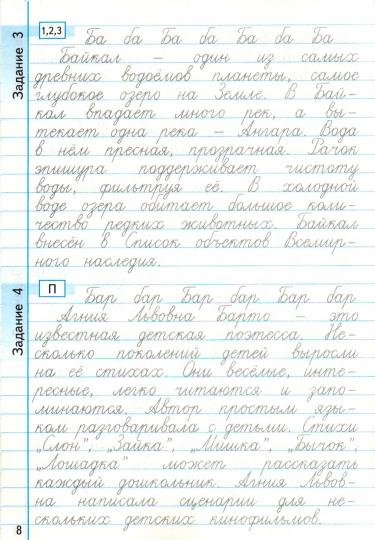 Задание 3
1,2,3
Ба ба Ба ба Ба ба Ба
Байкал – один из самых
древних водоёмов планеты, самое
глубокое озеро на Земле. В Бай-
кал впадает много рек, а вы-
текает одна река – Ангара. Вода
в нём пресная, прозрачная. Рачок
эпишура поддерживает чистоту
воды, фильтруя её. В холодной
воде озера обитает большое коли-
чество редких животных. Байкал
внесён в Список объектов Всемир-
ного наследия.
Задание 4
П
Бар бар Бар бар Бар бар
Агния Львовна Барто – это
известная детская поэтесса. Не-
сколько поколений детей выросли
на её стихах. Они весёлые, инте-
ресные, легко читаются и запо-
минаются. Автор простым язы-
ком разговаривала с детьми. Стихи
„Слон", „Зайка", „Мишка", „Бычок",
„Лошадка" может рассказать
каждый дошкольник. Агния Львов-
на написала сценарии для не-
скольких детских кинофильмов.
8